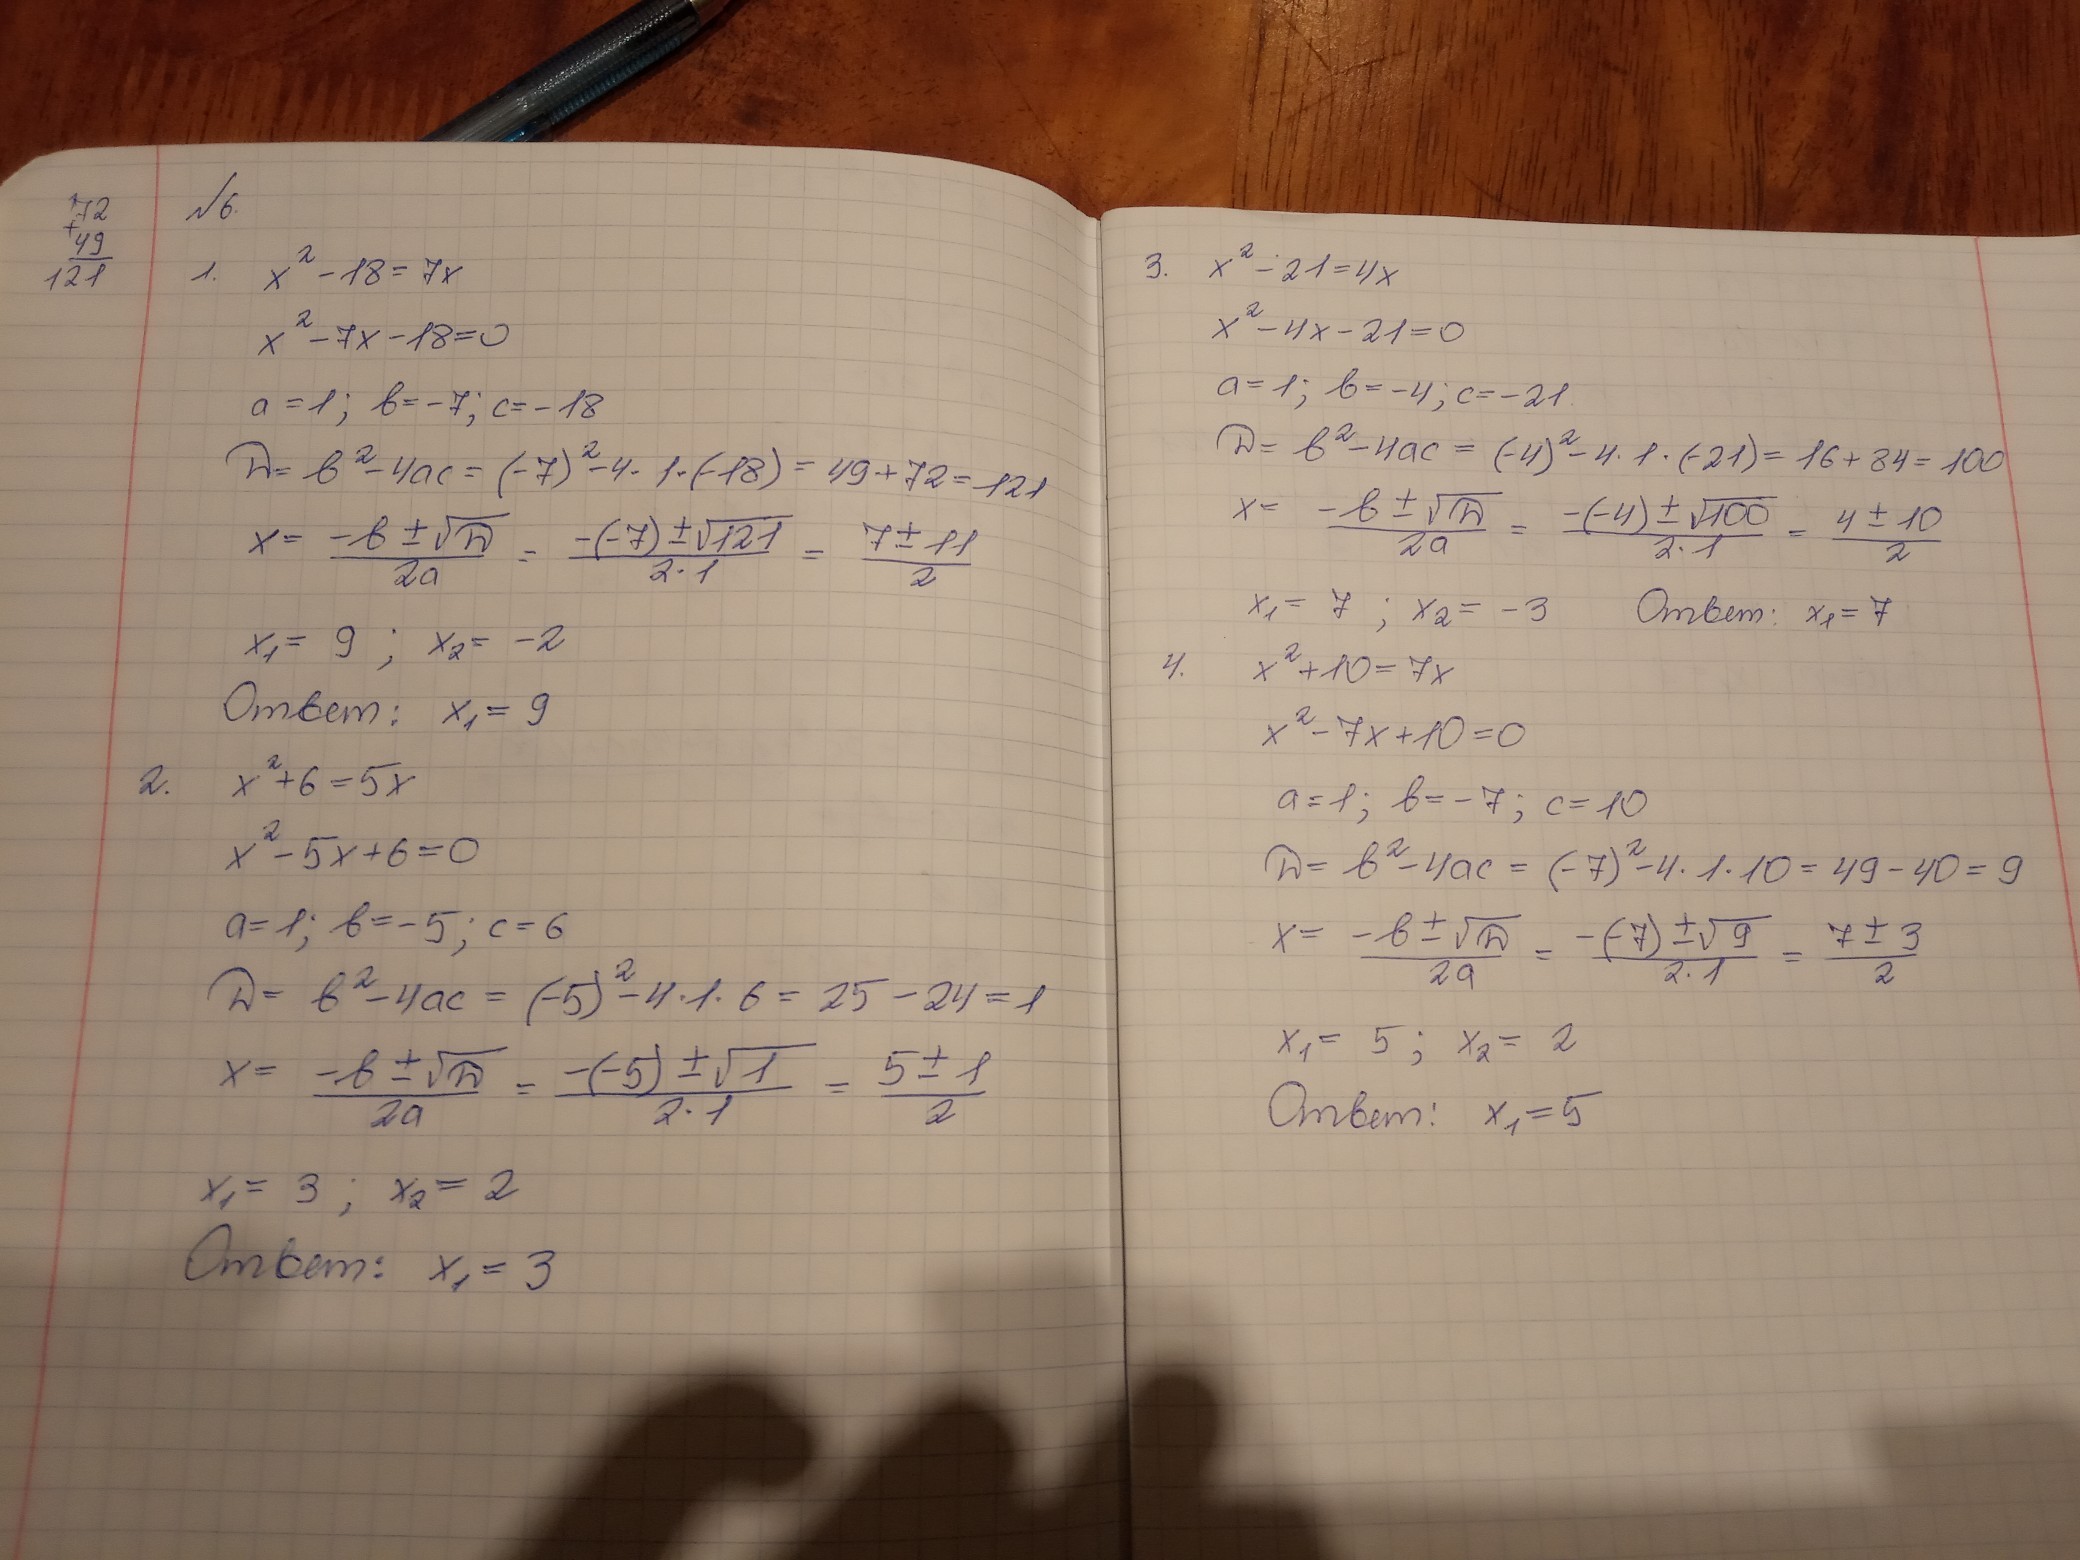 72
+
49
121
№6.
1. x² - 18 = 7x
x² - 7x - 18 = 0
a = 1; b = -7; c = -18
D = b² - 4ac = (-7)² - 4 · 1 · (-18) = 49 + 72 = 121
x = (-b ± √D)/(2a) = (-(-7) ± √121)/(2 · 1) = (7 ± 11)/2
x₁ = 9 ; x₂ = -2
Ответ: x₁ = 9
2. x² + 6 = 5x
x² - 5x + 6 = 0
a = 1; b = -5; c = 6
D = b² - 4ac = (-5)² - 4 · 1 · 6 = 25 - 24 = 1
x = (-b ± √D)/(2a) = (-(-5) ± √1)/(2 · 1) = (5 ± 1)/2
x₁ = 3 ; x₂ = 2
Ответ: x₁ = 3
3. x² - 21 = 4x
x² - 4x - 21 = 0
a = 1; b = -4; c = -21
D = b² - 4ac = (-4)² - 4 · 1 · (-21) = 16 + 84 = 100
x = (-b ± √D)/(2a) = (-(-4) ± √100)/(2 · 1) = (4 ± 10)/2
x₁ = 7 ; x₂ = -3 Ответ: x₁ = 7
4. x² + 10 = 7x
x² - 7x + 10 = 0
a = 1; b = -7; c = 10
D = b² - 4ac = (-7)² - 4 · 1 · 10 = 49 - 40 = 9
x = (-b ± √D)/(2a) = (-(-7) ± √9)/(2 · 1) = (7 ± 3)/2
x₁ = 5 ; x₂ = 2
Ответ: x₁ = 5